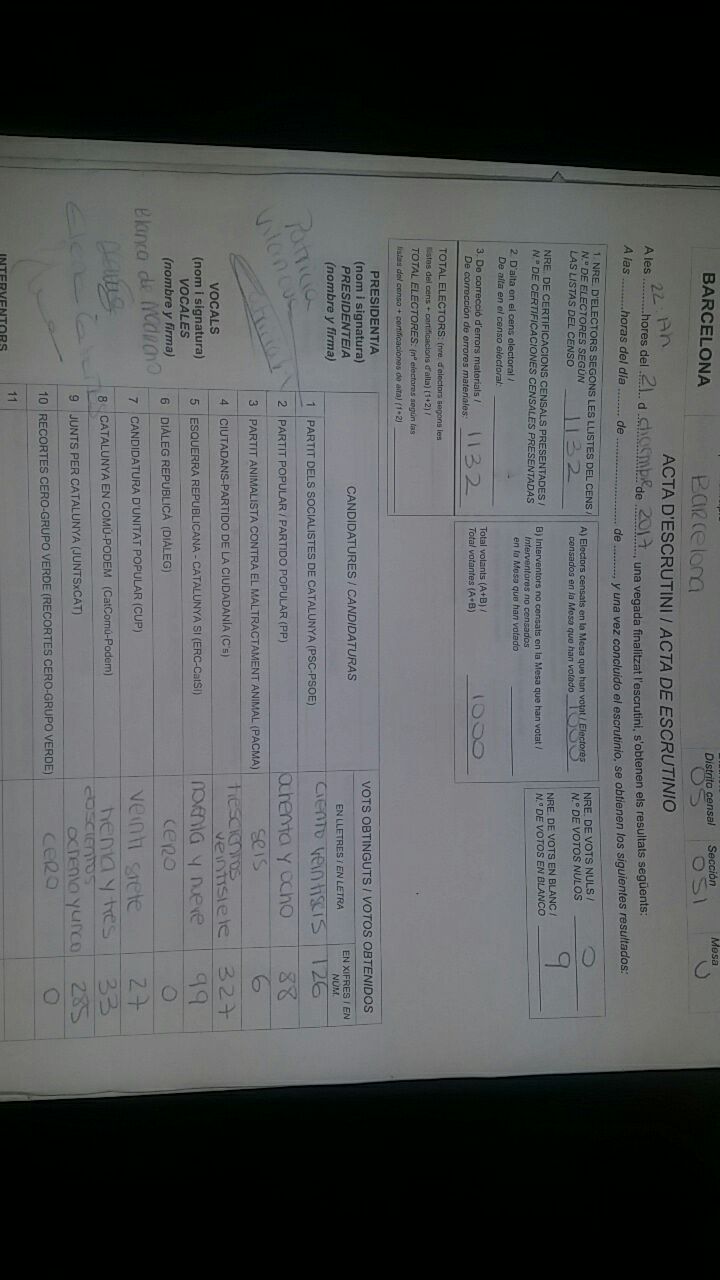 BARCELONA
Barcelona
Distrito censal
Sección
Mesa
05
051
U
ACTA D'ESCRUTINI / ACTA DE ESCRUTINIO
A les 22 hores del 21 d diciembre de 2017, una vegada finalitzat l'escrutini, s'obtenen els resultats següents:
A las ......... horas del día ......... de ......... de ........., y una vez concluido el escrutinio, se obtienen los siguientes resultados:
1. NRE. D'ELECTORS SEGONS LES LLISTES DEL CENS /
N.º DE ELECTORES SEGÚN
LAS LISTAS DEL CENSO 1132
NRE. DE CERTIFICACIONS CENSALS PRESENTADES /
N.º DE CERTIFICACIONES CENSALES PRESENTADAS
2. D'alta en el cens electoral /
De alta en el censo electoral:
3. De correcció d'errors materials /
De corrección de errores materiales: 1132
TOTAL ELECTORS: (nre. d'electors segons les
llistes del cens + certificacions d'alta) (1+2) /
TOTAL ELECTORES: (nº electores según las
listas del censo + certificaciones de alta) (1+2)
A) Electors censats en la Mesa que han votat / Electores
censados en la Mesa que han votado 1000
B) Interventors no censats en la Mesa que han votat /
Interventores no censados
en la Mesa que han votado
Total votants (A+B) /
Total votantes (A+B) 1000
NRE. DE VOTS NULS /
N.º DE VOTOS NULOS 0
NRE. DE VOTS EN BLANC /
N.º DE VOTOS EN BLANCO 9
PRESIDENT/A
(nom i signatura)
PRESIDENTE/A
(nombre y firma)
Patricia
VOCALS
(nom i signatura)
VOCALES
(nombre y firma)
Blanca de
INTERVENTORS
CANDIDATURES / CANDIDATURAS
VOTS OBTINGUTS / VOTOS OBTENIDOS
EN LLETRES / EN LETRA
EN XIFRES / EN NÚM.
1 PARTIT DELS SOCIALISTES DE CATALUNYA (PSC-PSOE) ciento veintiseis 126
2 PARTIT POPULAR / PARTIDO POPULAR (PP) ochenta y ocho 88
3 PARTIT ANIMALISTA CONTRA EL MALTRACTAMENT ANIMAL (PACMA) seis 6
4 CIUTADANS-PARTIDO DE LA CIUDADANÍA (C's) trescientos veintisiete 327
5 ESQUERRA REPUBLICANA - CATALUNYA SI (ERC-CatSí) noventa y nueve 99
6 DIÀLEG REPUBLICÀ (DIÀLEG) cero 0
7 CANDIDATURA D'UNITAT POPULAR (CUP) veinti siete 27
8 CATALUNYA EN COMÚ-PODEM (CatComú-Podem) treinta y tres 33
9 JUNTS PER CATALUNYA (JUNTSxCAT) doscientos ochenta y cinco 285
10 RECORTES CERO-GRUPO VERDE (RECORTES CERO-GRUPO VERDE) cero 0
11